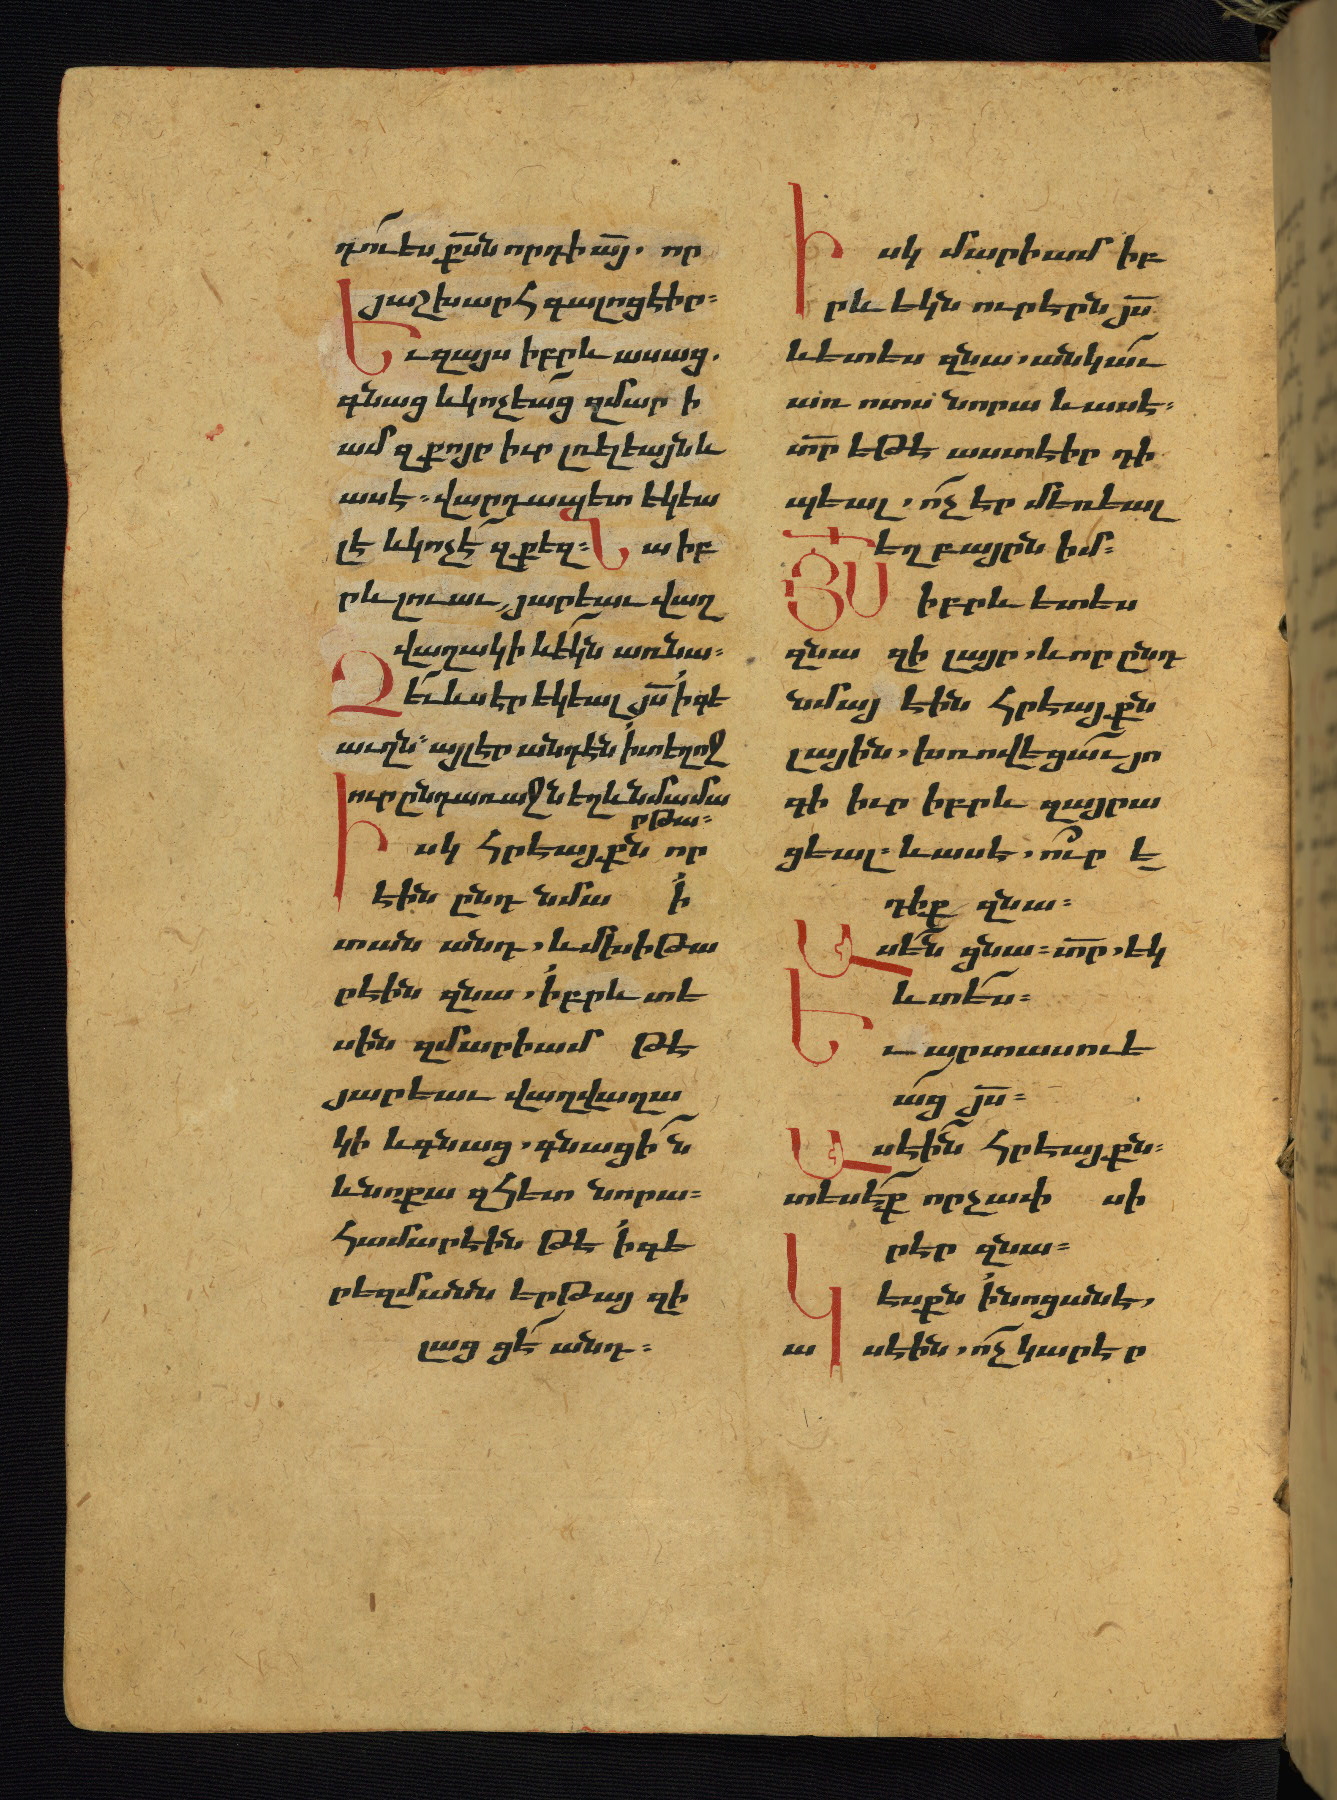 դու՛ ես քս̄ն որդի ա̄յ. որ
յաշխարհ գալոցէիր։
Եւ զայս իբրև ասաց.
գնաց և կոչեա՛ց զմարի
ամ զքոյր իւր լռելեայն և
ասէ։ վարդապետ եկեա
լէ և կոչէ՛ զքեզ։ Նա իբ
րև լուաւ, յարեաւ վաղ
վաղակի և ե՛կն առնա։
Զե՛ւ ևս էր եկեալ յս̄ ի գե
աւղն։ այլ էր անդէն ի տեղոջ
ուր ընդառաջն եղև նմա մա
րթա։
Իսկ հրեայքն որ
էին ընդ նմա ի
տանն անդ, և մխիթա
րէին զնա, իբրև տե
սին զմարիամ թէ
յարեաւ վաղվաղա
կի և գնաց, գնացի՛ն
և նոքա զհետ նորա։
Համարէին թէ ի գե
րեզմանն երթայ զի
լացցէ՛ անդ։
Իսկ մարիամ իբ
րև եկն ուր էրն յս̄
և ետես զնա, անկա՛ւ
առ ոտս նորա և ասէ։
տ̄ր եթէ աստ էիր դի
պեալ, ո՛չ էր մեռեալ
եղբայրն իմ։
ՅՍ իբրև ետես
զնա զի լայր, և որ ընդ
նմայ էին հրեայքն
լային, խռովեցա՛ւ յո
գի իւր իբրև զայրա
ցեալ։ և ասէ, ո՞ւր ե
դէք զնա։
Ասե՛ն ցնա։ տ̄ր, եկ
և տե՛ս։
Եւ արտասուե
ա՛ց յս̄։
Ասէի՛ն հրեայքն։
տեսէ՛ք որչափ սի
րէր զնա։
Կեսքն ի նոցանէ,
ասէին, ո՛չ կարէր